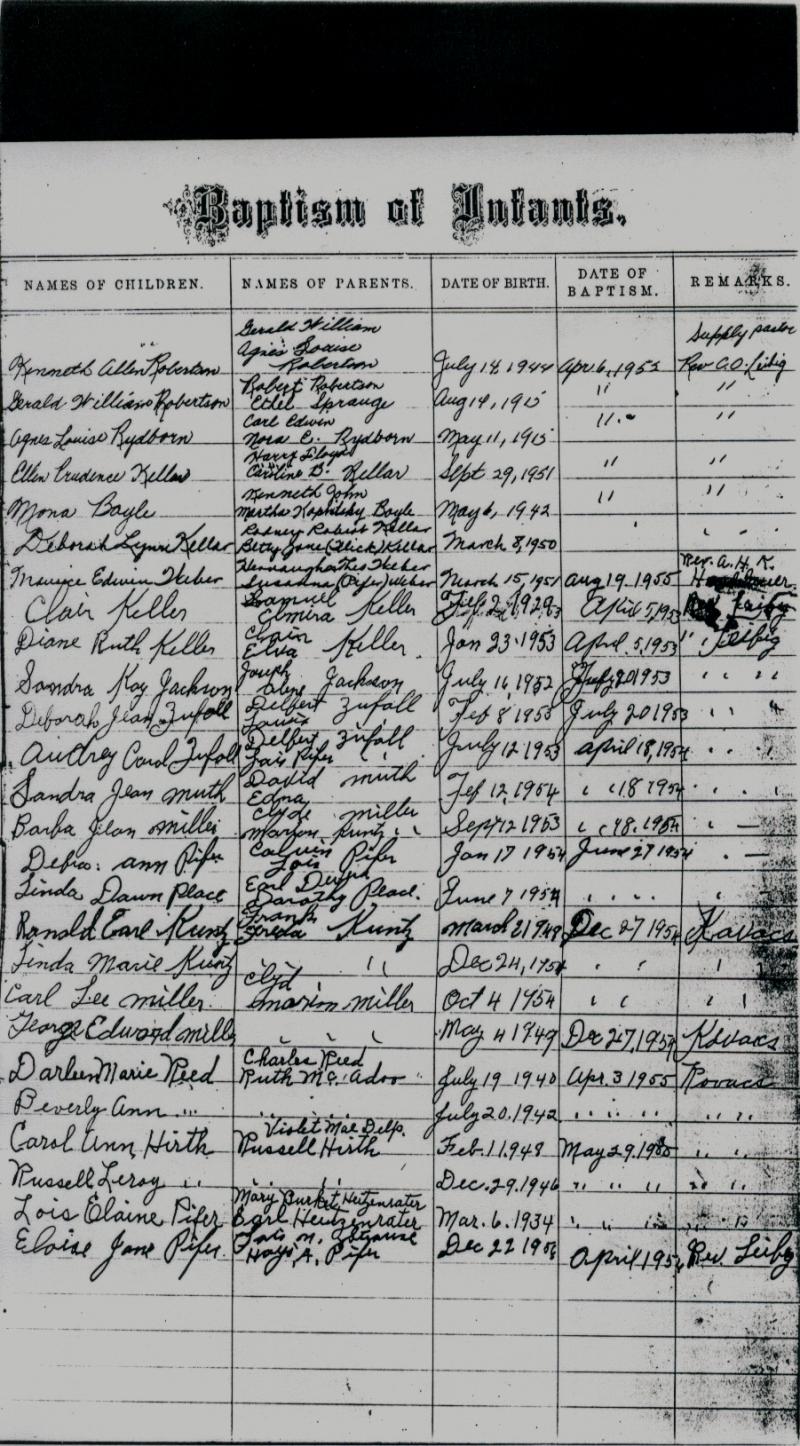 Baptism of Infants.
NAMES OF CHILDREN. NAMES OF PARENTS. DATE OF BIRTH. DATE OF BAPTISM. REMARKS.
Gerald William Supply pastor
Agnes Louise
Kenneth Allen Robertson Robertson July 18 1944 Apr 6, 1952 Rev A.O. Leibig
Robert Robertson
Gerald William Robertson Ethel Sprauge Aug 14, 1915 " "
Carl Edwin
Agnes Louise Rydborn Nora C. Rydborn May 11, 1915 " "
Harry Lloyd
Ellen Prudence Kellar Caroline B. Kellar Sept 29, 1951 " "
Kenneth John
Mona Boyle Martha Boyle May 6, 1942 " "
Rodney Robert Kellar
Deborah Lynn Kellar Betty Jane (Slick) Kellar March 8, 1950
Theo Weber Rev. A. H. K.
Maurice Edwin Weber Susanna (Pifer) Weber March 15, 1951 Aug 19 1955
Samuel
Clair Keller Elmira Keller Feb 2 1929 April 5, 1953
Clair
Diane Ruth Keller Elva Keller. Jan 23 1953 April 5, 1953 "
Joseph
Sandra Kay Jackson Jackson July 16, 1952 July 20 1953 " "
Delbert Zufall
Deborah Jean Zufall Feb 8 1953 July 20 1953 " "
Delbert Zufall
Audrey Carol Zufall Lois Pifer July 12 1953 April 18, 1954 " "
David Muth
Sandra Jean Muth Edna Feb 12, 1954 " " 18 1954 " "
Clyde Miller
Barba Jean Miller Marion Kuntz " " Sept 12 1953 " " 18. 1954 " —
Calvin
Debra Ann Pifer Lois Pifer Jan 17 1954 June 27 1954 " —
Earl
Linda Dawn Place Dorothy Place. June 7 1954 " " " "
Frank
Ronald Earl Kuntz Freda Kuntz March 21 1949 Dec 27 1954 Kovacs
Linda Marie Kuntz " " Dec 24, 1951 " " " "
Clyd
Carl Lee Miller Marion Miller Oct 4 1954 " " " "
George Edward Mille " " " May 4 1949 Dec 27, 1954 Kovacs
Charles Reed
Darleen Marie Reed Ruth Mc. Adoo July 19 1940 Apr. 3 1955 Kovacs
Beverly Ann " " " " " July 20. 1942 " " " " " "
Violet Mae Delp.
Carol Ann Hirth Russell Hirth Feb. 11. 1948 May 29. 1955 " "
Russell Leroy " " " " " Dec. 29. 1946 " " " " " "
Mary Burket Heitzenrater
Lois Elaine Pifer Earl Heitzenrater Mar. 6. 1934 " " " " " "
Lois M.
Eloise Jane Pifer. Hays A. Pifer Dec 22 1956 April Rev. Leiby